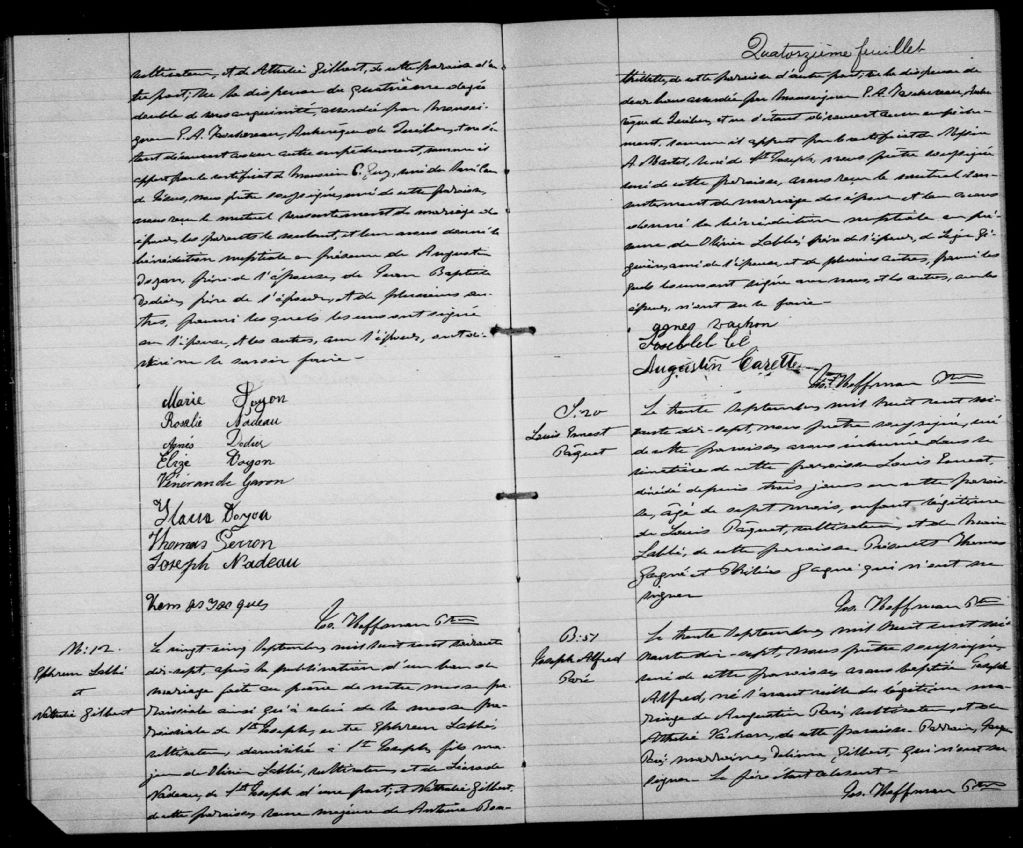 cultivateur, et de Athalie Gilbert, de cette paroisse d'au-
tre part; Vu la dispense du quatrième degré
double de consanguinité, accordée par Monsei-
gneur E. A. Taschereau, Archevêque de Québec, et ne s'é-
tant découvert aucun autre empêchement, comme il
appert par le certificat de Monsieur curé du
nous prêtre soussigné, curé de cette paroisse,
avons reçu le mutuel consentement de mariage des
époux, les parents le voulant, et leur avons donné la
bénédiction nuptiale en présence de Augustin
Doyon, frère de l'épouse, de Jean Baptiste
Rodier, frère de l'époux, et de plusieurs au-
tres, parmi lesquels les uns ont signé
avec l'épouse, et les autres, avec l'époux, ont dé-
claré ne le savoir faire —
Marie Doyon
Rosalie Nadeau
Agnès Dodier
Elize Doyon
Vénérande Garon
Maria Doyon
Thomas Perron
Joseph Nadeau
Jacques
Jos. Hoffman Ptre
M: 12.
Ephrem Labbé
et
Nathalie Gilbert
Le vingt-cinq Septembre mil huit cent soixante
dix-sept, après la publication d'un ban de
mariage faite au prône de notre messe pa-
roissiale ainsi qu'à celui de la messe pa-
roissiale de St Joseph, entre Ephrem Labbé,
cultivateur, domicilié à St Joseph, fils ma-
jeur de Olivier Labbé, cultivateur, et de
Nadeau, de St Joseph d'une part; et Nathalie Gilbert,
de cette paroisse, veuve majeure de Antoine
Quatorzième feuillet
de cette paroisse d'autre part; Vu la dispense de
deux bans accordée par Monseigneur E. A. Taschereau, Arche-
vêque de Québec, et ne s'étant découvert aucun empêche-
ment, comme il appert par le certificat de Messire
A. Martel, curé de St Joseph, nous prêtre soussigné
curé de cette paroisse, avons reçu le mutuel con-
sentement de mariage des époux et leur avons
donné la bénédiction nuptiale en pré-
sence de Olivier Labbé, père de l'époux, de
ami de l'épouse, et de plusieurs autres, parmi les-
quels les uns ont signé avec nous, et les autres, avec les
époux, n'ont su le faire —
agnes vachon
Augustin Carette
Jos. Hoffman Ptre
S. 20
Louis Ernest
Pâquet
Le trente Septembre mil huit cent soi-
xante dix-sept, nous prêtre soussigné, curé
de cette paroisse, avons inhumé dans le
cimetière de cette paroisse Louis Ernest,
décédé depuis trois jours en cette parois-
se, âgé de sept mois, enfant légitime
de Louis Pâquet, cultivateur, et de Marie
Labbé, de cette paroisse. Présents Thomas
Gagné et Gagné qui n'ont su
signer
Jos. Hoffman Ptre
B: 51
Joseph Alfred
Paré
Le trente Septembre mil huit cent soi-
xante dix-sept, nous prêtre soussigné,
curé de cette paroisse, avons baptisé Joseph
Alfred, né l'avant veille du légitime ma-
riage de Augustin Paré, cultivateur, et de
Athalie Vachon, de cette paroisse. Parrain,
Paré; marraine, Gilbert, qui n'ont su
signer. Le père était absent —
Jos. Hoffman Ptre